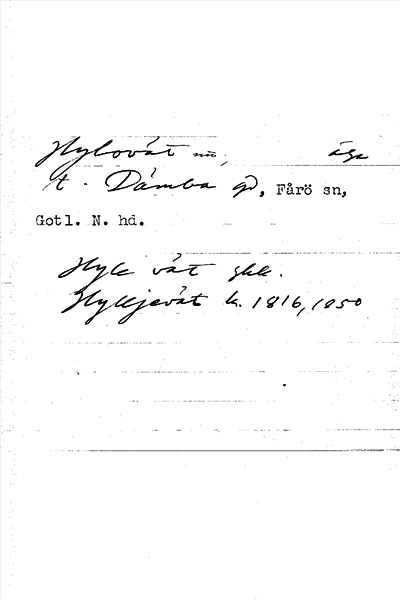 Hylovät nn, äga
t. Dämba gd, Fårö sn,
Gotl. N. hd.
Hyle vät
Hylljevät k. 1816, 1850